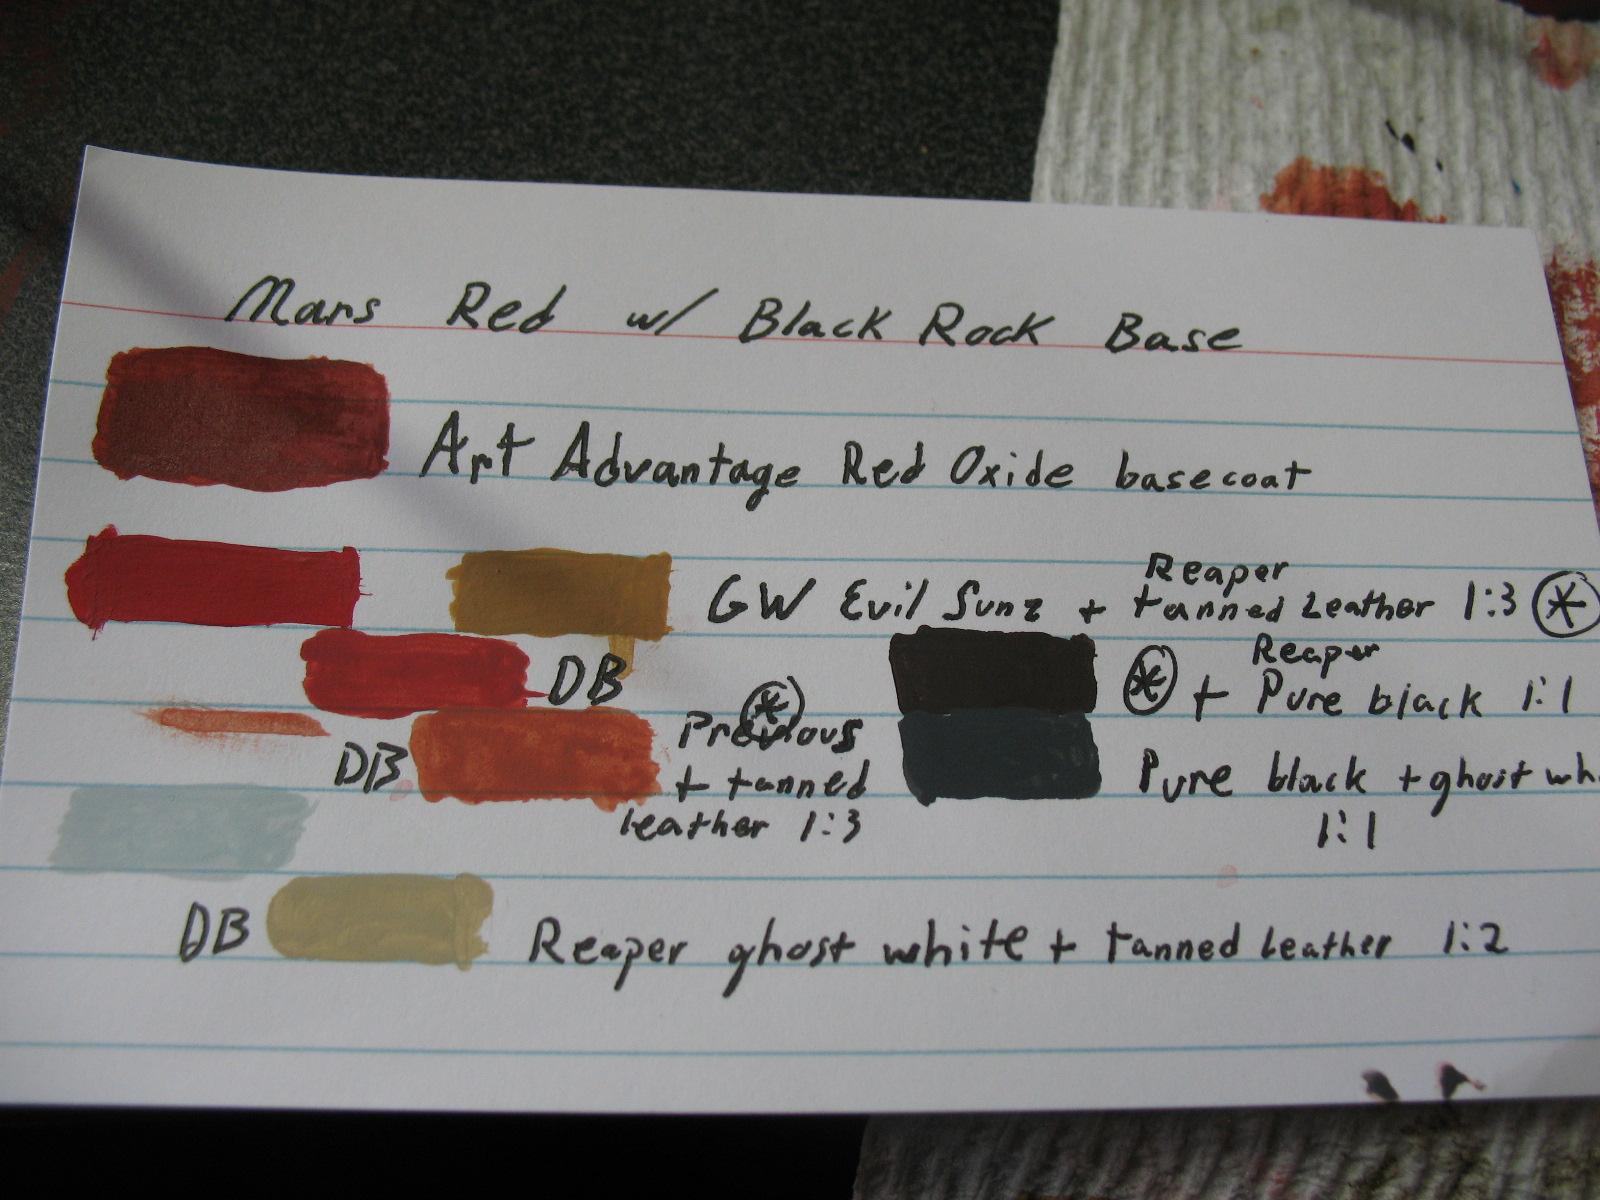 Mars Red w/ Black Rock Base
Art Advantage Red Oxide basecoat
GW Evil Sunz + Reaper tanned Leather 1:3 *
DB
* Previous
+ tanned
leather 1:3
DB
* + Reaper Pure black 1:1
Pure black + ghost wh
1:1
DB Reaper ghost white + tanned Leather 1:2